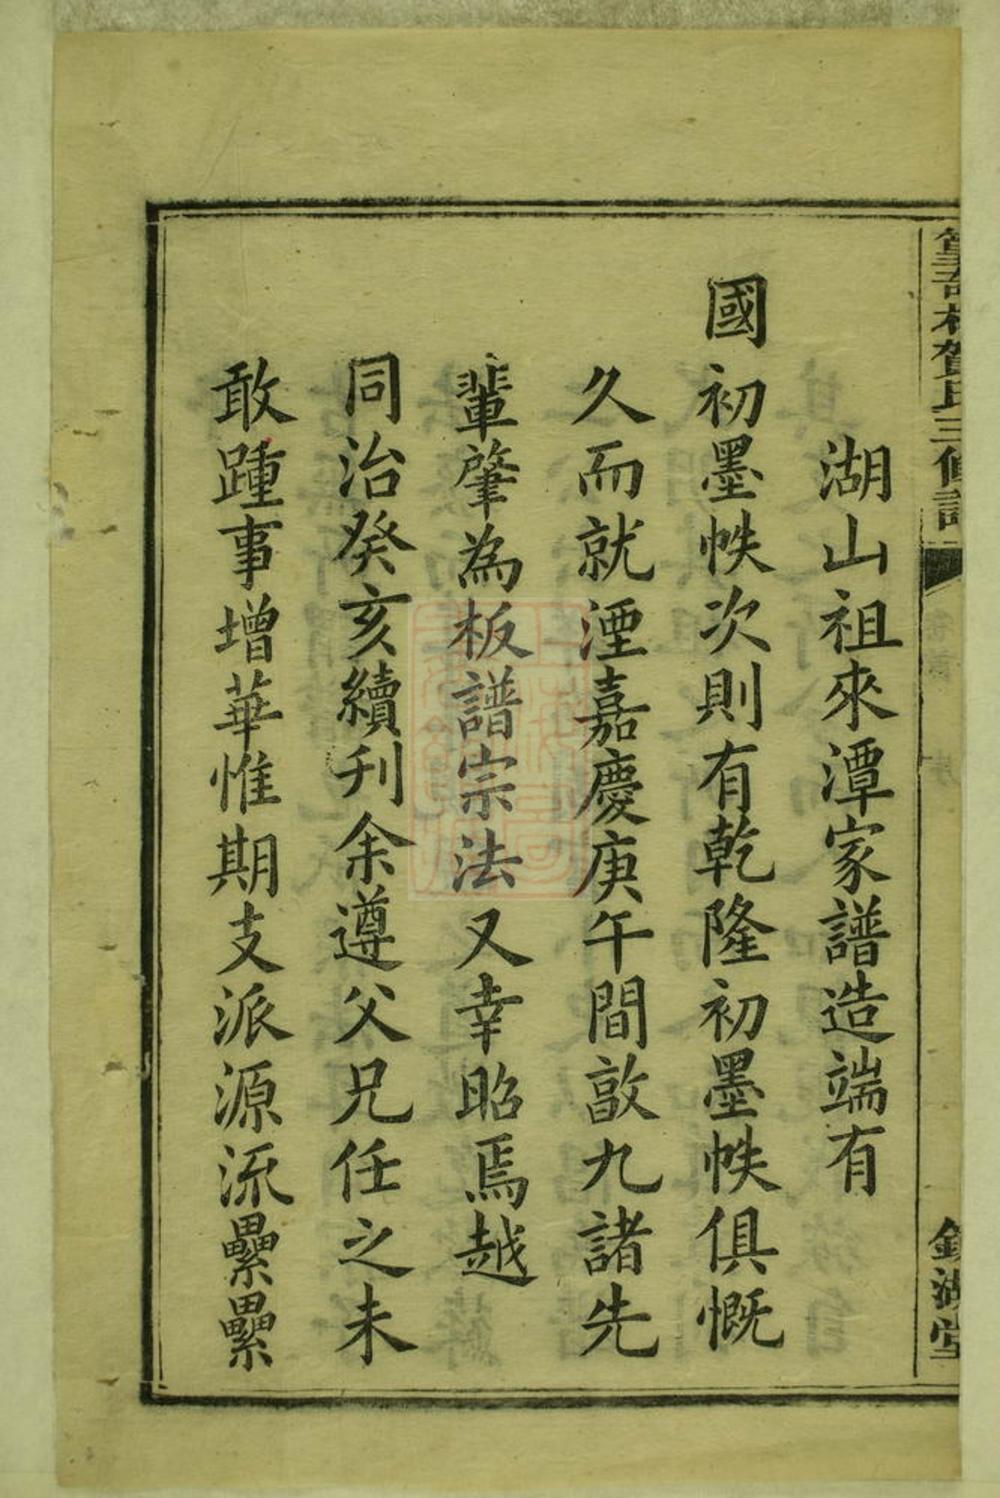 賀氏三修譜
湖山祖來潭家譜造端有
國初墨帙次則有乾隆初墨帙俱慨
久而就湮嘉慶庚午間敿九諸先
輩肇為板譜宗法又幸昭焉越
同治癸亥續刋余遵父兄任之未
敢踵事增華惟期支派源流纍纍